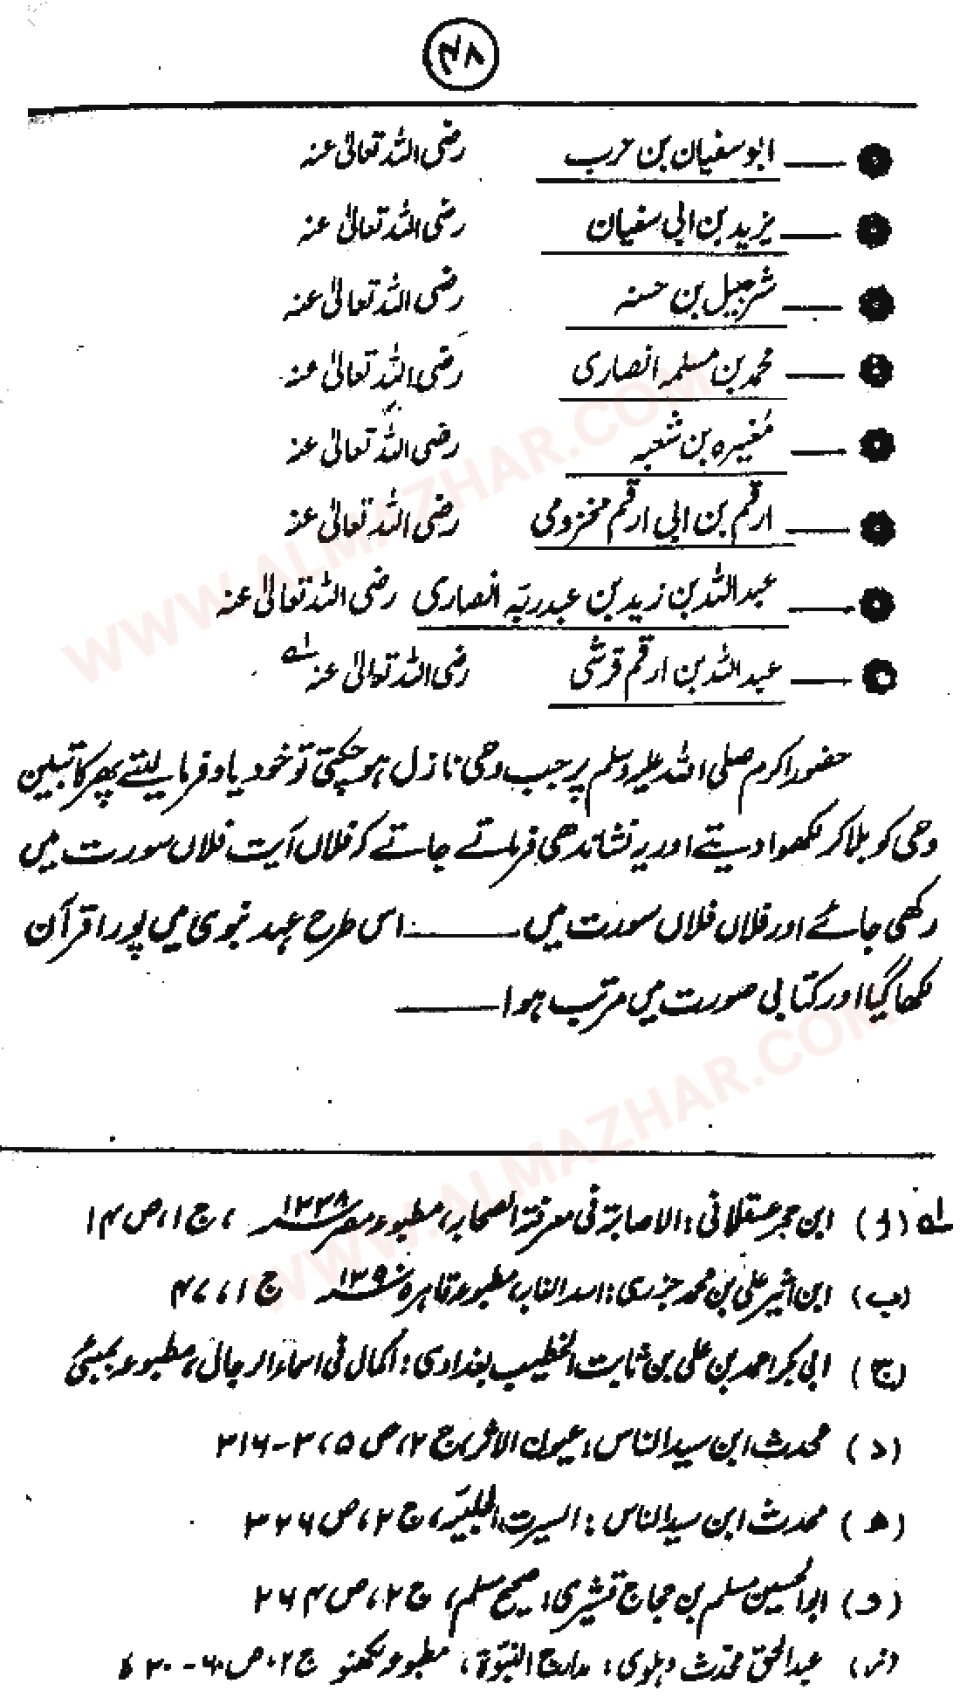 ۴۸
ابو سفیان بن حرب رضی اللہ تعالیٰ عنہ
یزید بن ابی سفیان رضی اللہ تعالیٰ عنہ
شرجیل بن حسنہ رضی اللہ تعالیٰ عنہ
محمد بن مسلمہ انصاری رضی اللہ تعالیٰ عنہ
مُغیرہ بن شعبہ رضی اللہ تعالیٰ عنہ
ارقم بن ابی ارقم مخزومی رضی اللہ تعالیٰ عنہ
عبداللہ بن زید بن عبدربّہ انصاری رضی اللہ تعالیٰ عنہ
عبداللہ بن ارقم قرشی رضی اللہ تعالیٰ عنہ ؂۱
حضور اکرم صلی اللہ علیہ وسلم پر جب وحی نازل ہو چکتی تو خود یاد فرما لیتے پھر کاتبین
وحی کو بلا کر لکھوا دیتے اور یہ نشاندھی فرماتے جاتے کہ فلاں آیت فلاں سورت میں
رکھی جائے اور فلاں فلاں سورت میں ـــــــ اس طرح عہد نبوی میں پورا قرآن
لکھا گیا اور کتابی صورت میں مرتب ہوا ـــــــ
؂۱ (ا) ابن حجر عسقلانی : الاصابۃ فی معرفۃ الصحابہ، مطبوعہ مصر ۱۳۳۸ ، ج ۱، ص ۱۴
(ب) ابن اثیر علی بن محمد جزری : اسد الغابہ مطبوعہ قاہرہ ۱۳۹۰ ج ۱، ۴۷
(ج) ابی بکر احمد بن علی بن ثابت الخطیب بغدادی : اکمال فی اسماء الرجال، مطبوعہ بمبئی
(د) محدث ابن سید الناس : عیون الاثر، ج ۲، ص ۳۱۵، ۳۱۶
(ھ) محدث ابن سید الناس : السیرت الحلبیّہ، ج ۳، ص ۳۲۶
(و) ابوالحسین مسلم بن حجاج قشیری : صحیح مسلم، ج ۲، ص ۲۶۴
(ز) عبدالحق محدّث دہلوی : مدارج النبوّۃ، مطبوعہ لکھنو ج ۲، ص
WWW.ALMAZHAR.COM
WWW.ALMAZHAR.COM